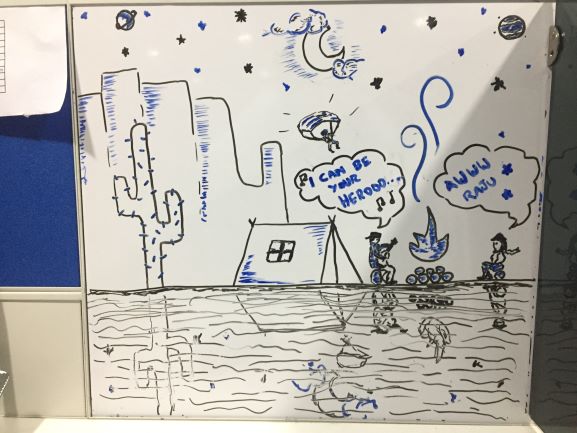 I CAN BE
YOUR
HEROOO...
AWWW
RAJU